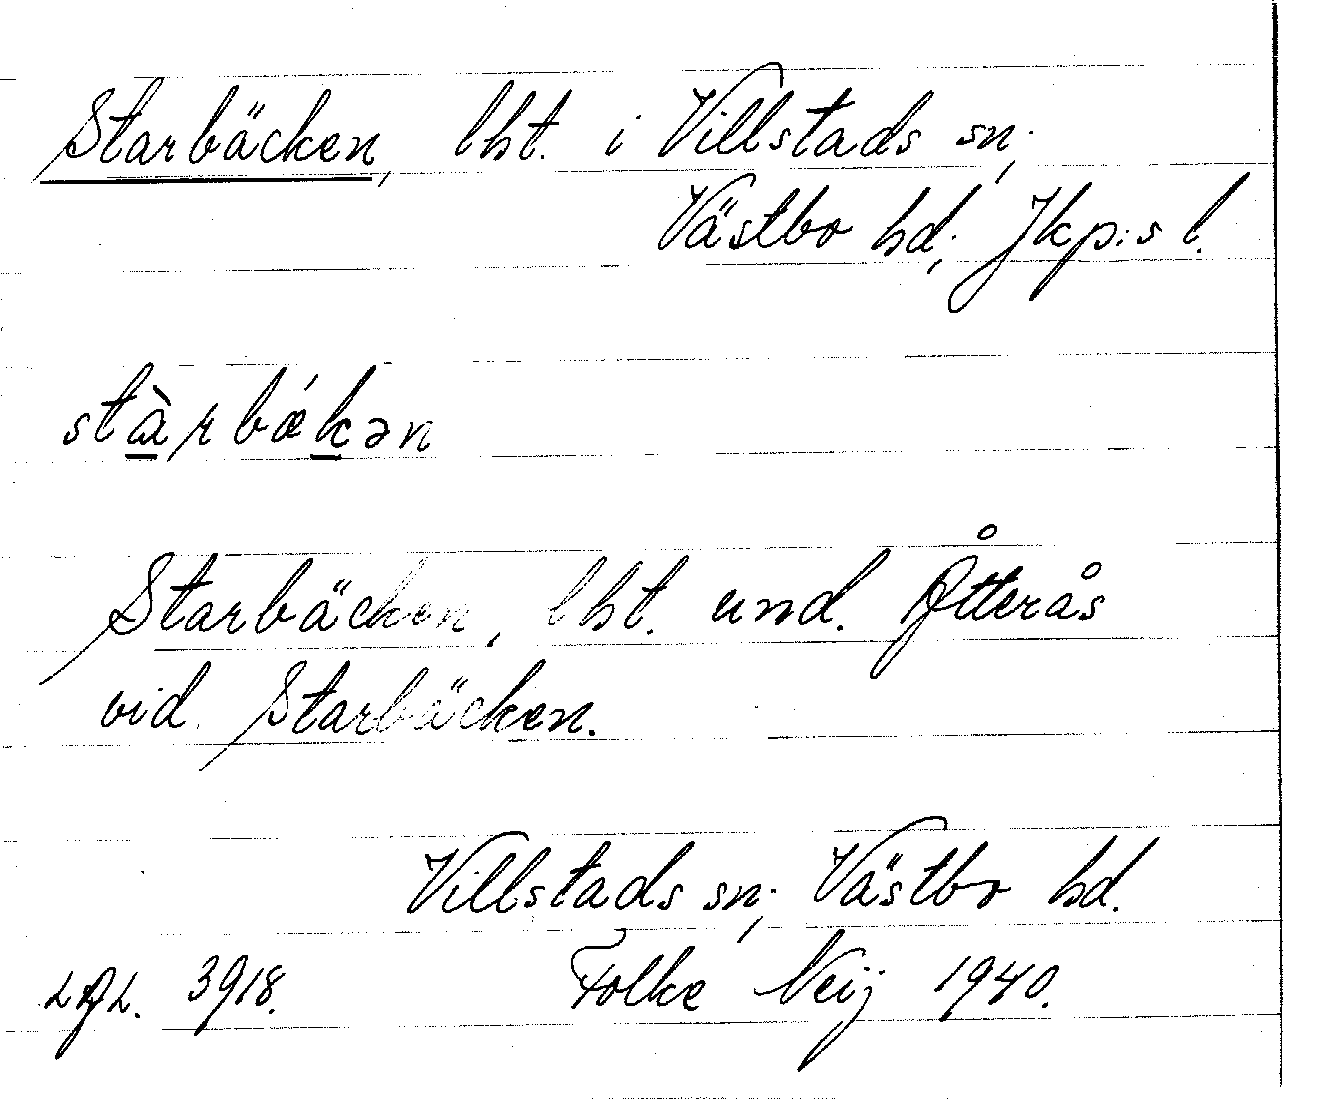 Starbäcken, lht. i Villstads sn.,
Västbo hd., Jkp:s l.
stàrbǽkən
Starbäcken, lht. und. Åtterås
vid Starbäcken.
Villstads sn., Västbo hd.
LAL. 3918. Folke Neij 1940.